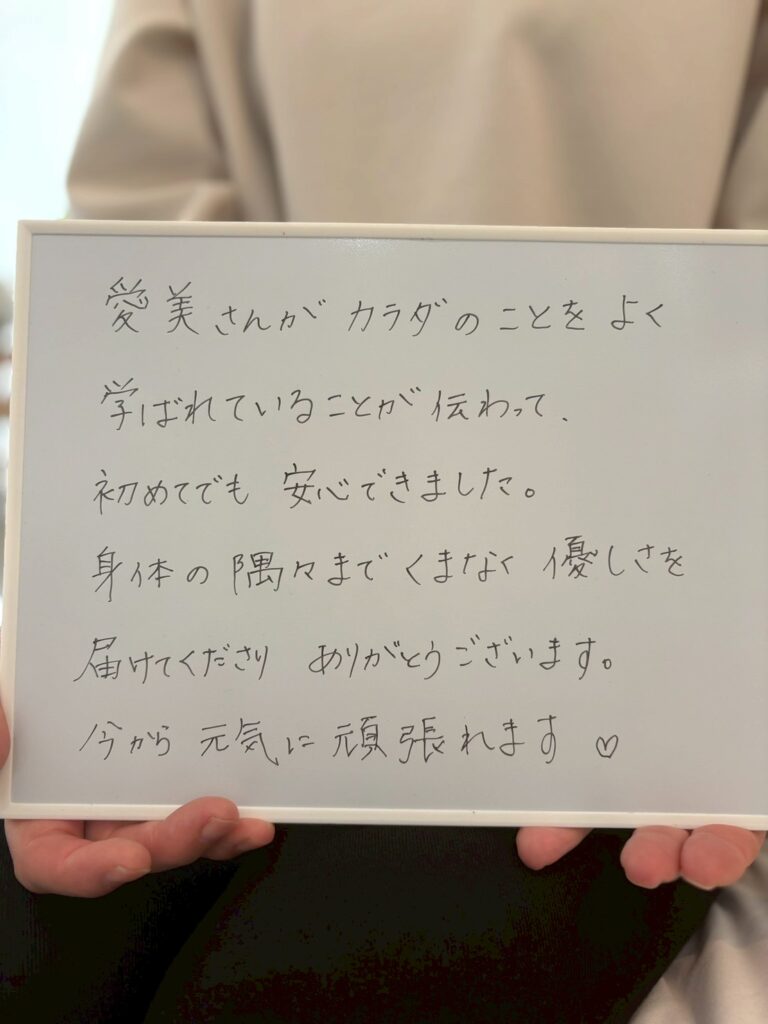 愛美さんが カラダのことを よく
学ばれていることが 伝わって、
初めてでも 安心できました。
身体の 隅々まで くまなく 優しさを
届けてくださり ありがとうございます。
今から 元気に 頑張れます ♡